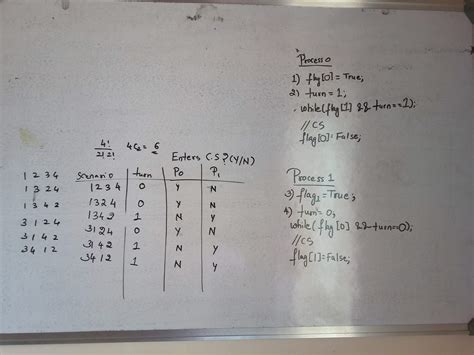 Process 0
1) flag[0] = True;
2) turn = 1;
while(flag[1] && turn==1);
//CS
flag[0]=False;
4!
2!2!
4C2 = 6
Enters C.S?(Y/N)
1 2 3 4
1 3 2 4
1 3 4 2
3 1 2 4
3 1 4 2
3 4 1 2
Scenario turn P0 P1
1 2 3 4 0 Y N
1 3 2 4 0 Y N
1 3 4 2 1 N Y
3 1 2 4 0 Y N
3 1 4 2 1 N Y
3 4 1 2 1 N Y
Process 1
3) flag1 = True;
4) turn = 0;
while( flag [0] && turn==0);
//CS
flag[1]=False;